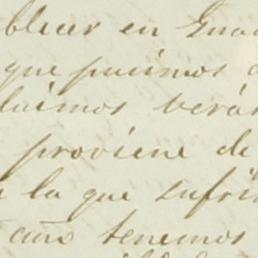 blecer en Gua
que pusimos
luimos verás
proviene de
la que sufri
cans tenemos